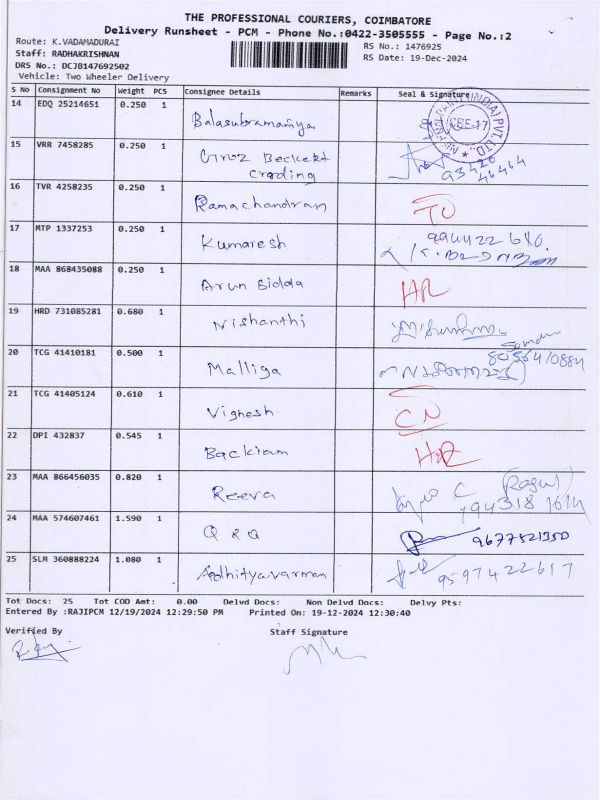 THE PROFESSIONAL COURIERS, COIMBATORE
Delivery Runsheet - PCM - Phone No.:0422-3505555 - Page No.:2
Route: K.VADAMADURAI
RS No.: 1476925
Staff: RADHAKRISHNAN
RS Date: 19-Dec-2024
DRS No.: DCJB147692502
Vehicle: Two Wheeler Delivery
S No Consignment No Weight PCS Consignee Details Remarks Seal & Signature
14 EDQ 25214651 0.250 1 Balasubramaniya
15 VRR 7458285 0.250 1 Groz Beckert
Crading 93420
46464
16 TVR 4258235 0.250 1 Ramachandran TO
17 MTP 1337253 0.250 1 Kumaresh
18 MAA 868435088 0.250 1 Arun Bidda HR
19 HRD 731085281 0.680 1 Nishanthi
20 TCG 41410181 0.500 1 Malliga
21 TCG 41405124 0.610 1 Vighesh CN
22 DPI 432837 0.545 1 Backiam
23 MAA 866456035 0.820 1 Reeva
24 MAA 574607461 1.590 1 Q & Q 9677521350
25 SLM 360888224 1.080 1 Adhityavarman 9597422617
Tot Docs: 25 Tot COD Amt: 0.00 Delvd Docs: Non Delvd Docs: Delvy Pts:
Entered By :RAJIPCM 12/19/2024 12:29:50 PM Printed On: 19-12-2024 12:30:40
Verified By Staff Signature